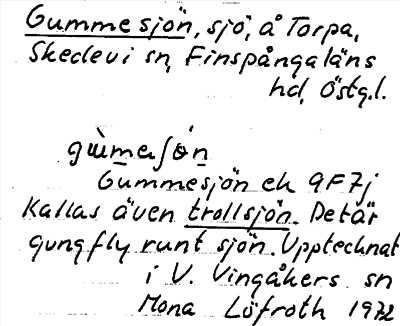 Gummesjön, sjö, å Torpa,
Skedevi sn, Finspångaläns
hd, Östg.l.
Gummesjön ek 9F7j
Kallas även trollsjön. Det är
gungfly runt sjön. Upptecknat
i V. Vingåkers sn
Mona Löfroth 1972